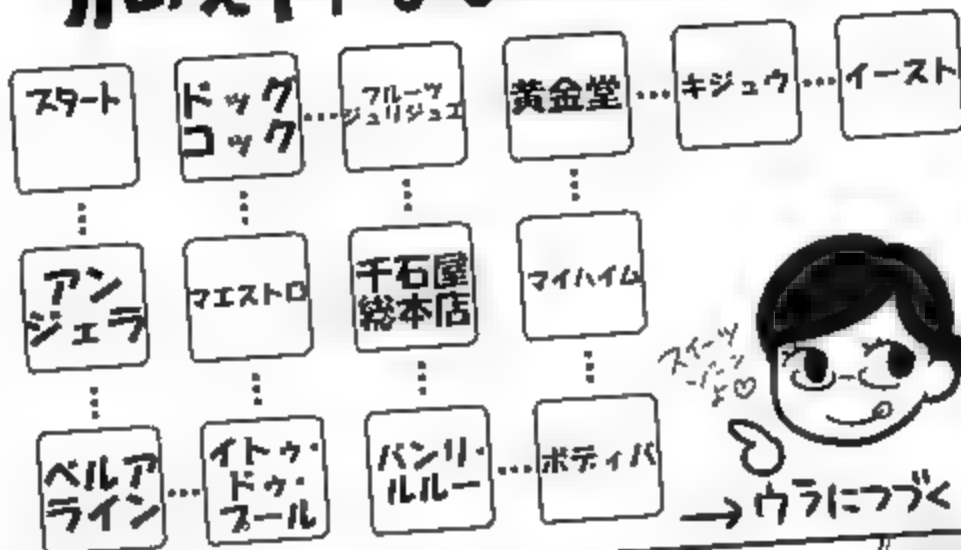 スタート
ドッグ
コック
フルーツ
ジュリジュエ
黄金堂
キジュウ
イースト
アン
ジェラ
マエストロ
千石屋
総本店
マイハイム
スイーツ
よ♡
ベルア
ライン
イトゥ・
ドゥ・
プール
バンリ・
ルルー
ボディバ
→ウラにつづく